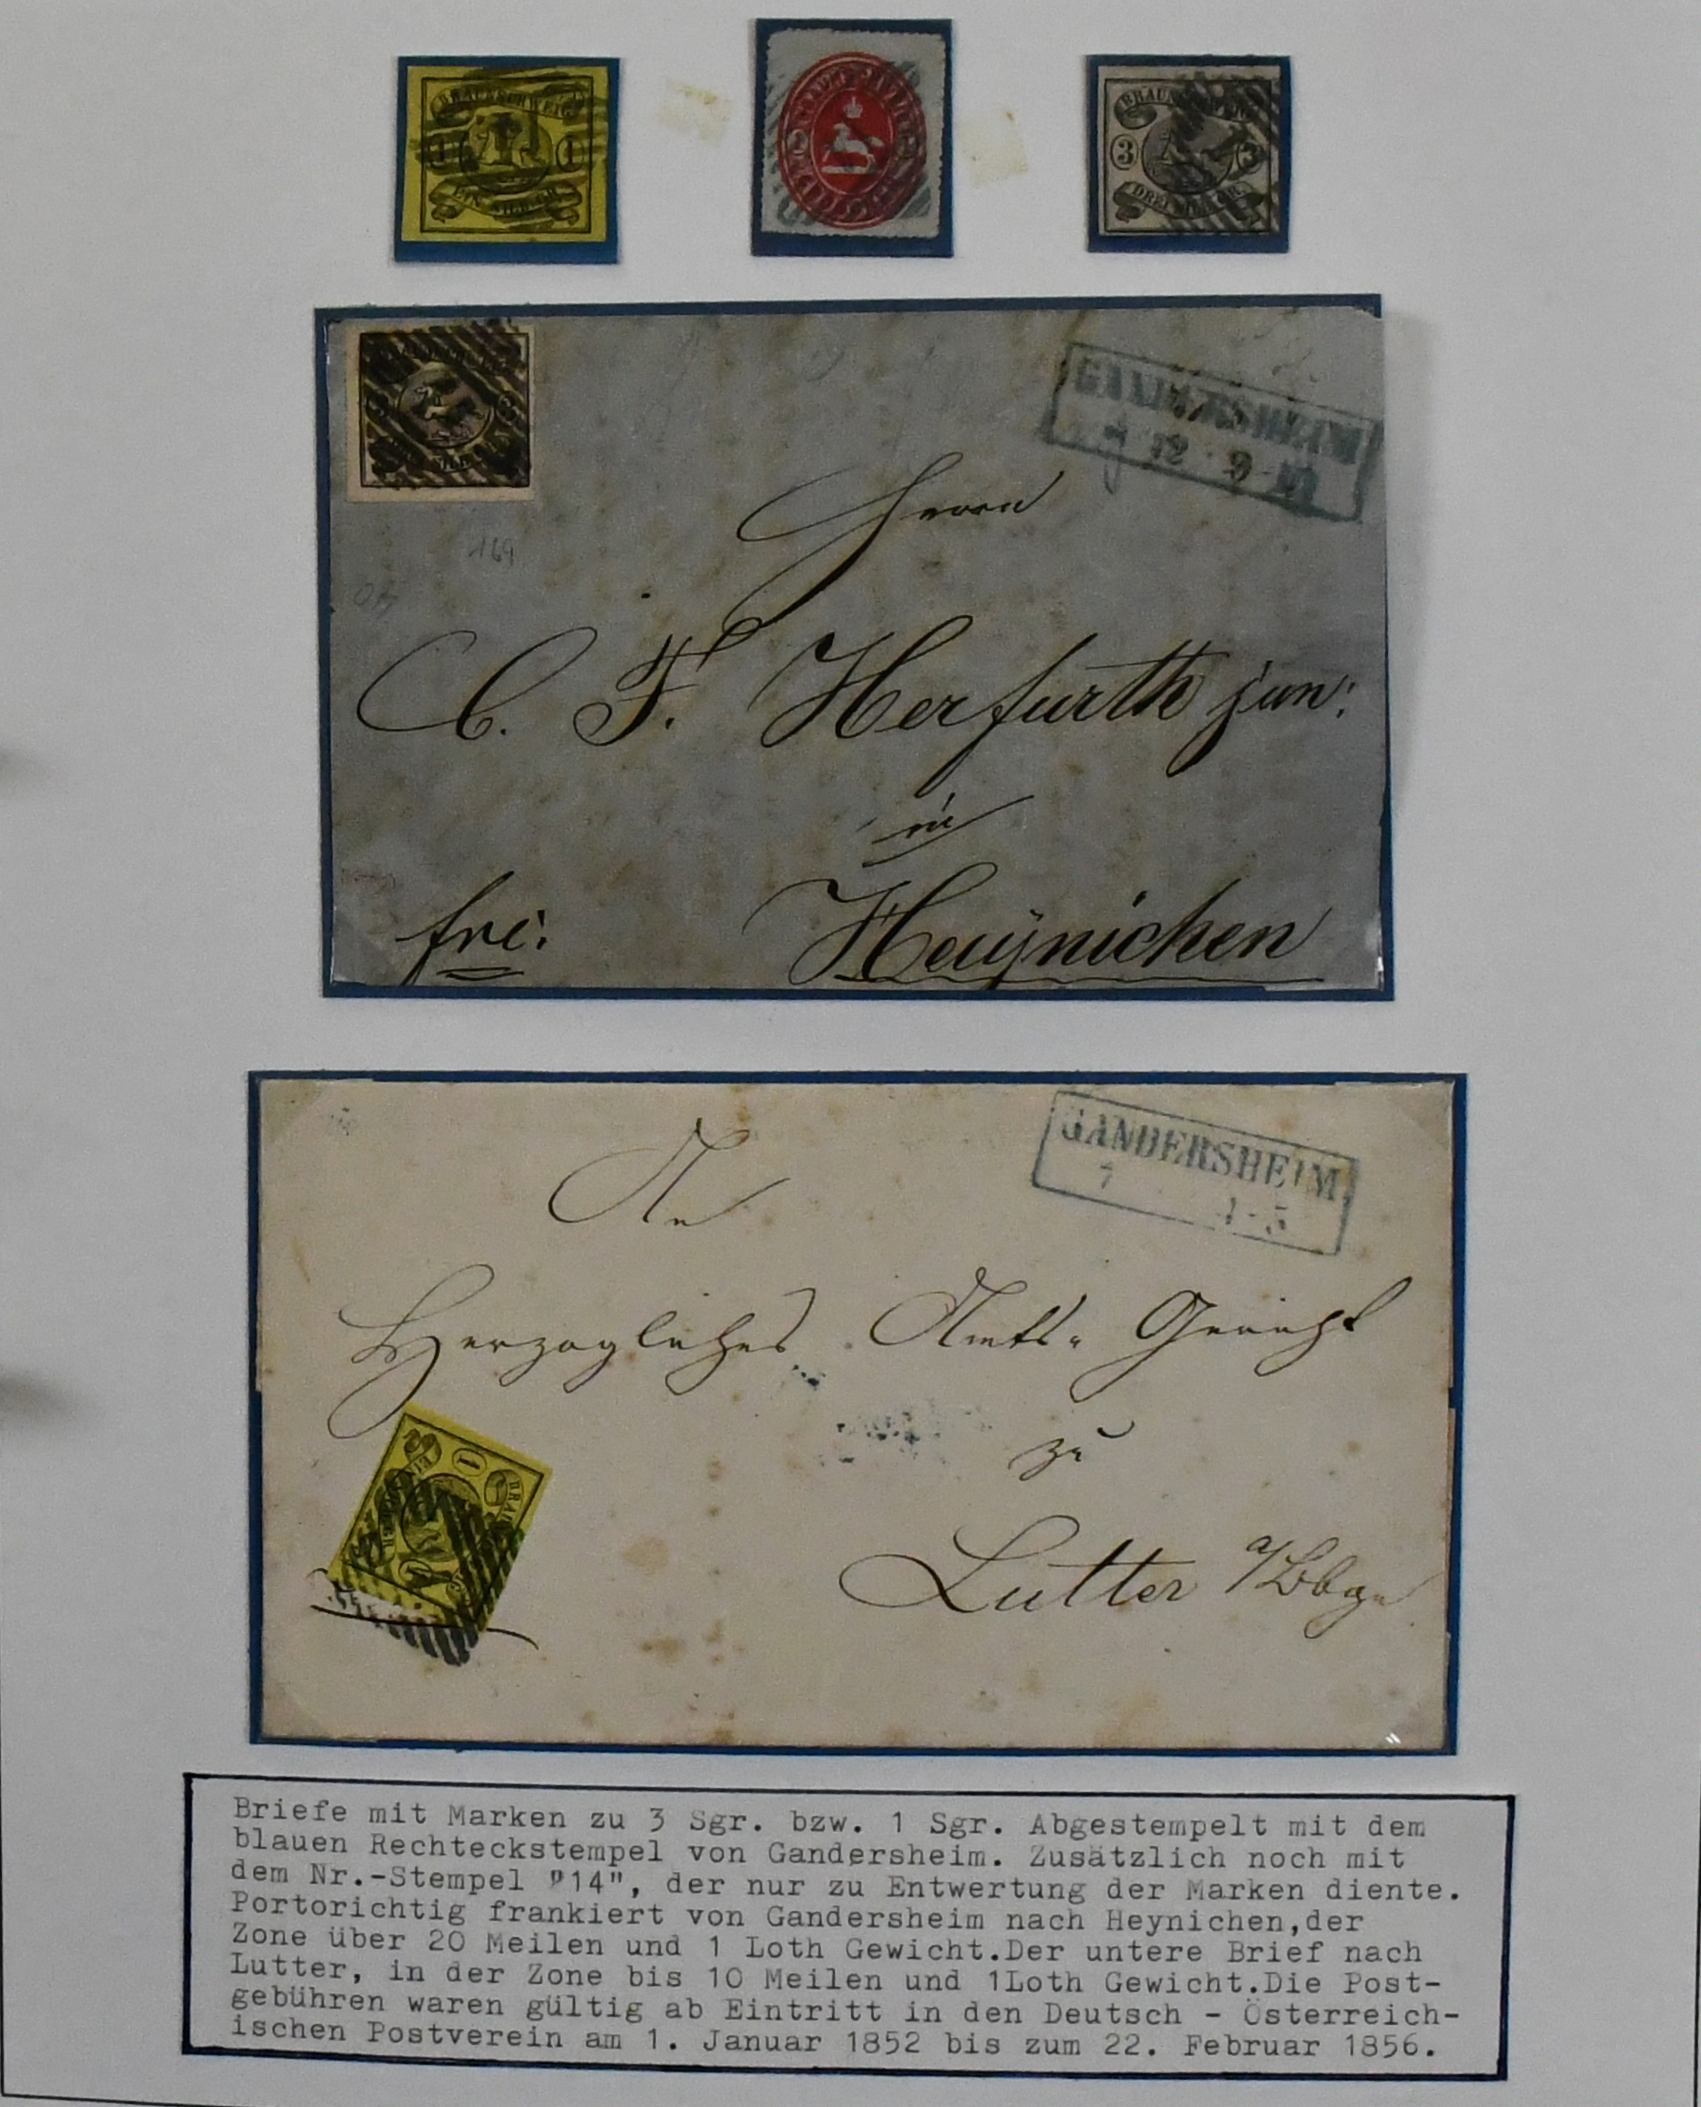 BRAUNSCHWEIG
1 1
EIN SILB.GR.
BRAUNSCHWEIG
3 3
DREI SILB.GR.
GANDERSHEIM
12 9-10
169
Herrn
C. F. Herfurth jun:
in
frei: Heÿnichen
GANDERSHEIM
7 4-5
An
Herzogliches Amts-Gericht
zu
Lutter a/Bbge
1
Briefe mit Marken zu 3 Sgr. bzw. 1 Sgr. Abgestempelt mit dem
blauen Rechteckstempel von Gandersheim. Zusätzlich noch mit
dem Nr.-Stempel "14", der nur zu Entwertung der Marken diente.
Portorichtig frankiert von Gandersheim nach Heynichen,der
Zone über 20 Meilen und 1 Loth Gewicht.Der untere Brief nach
Lutter, in der Zone bis 10 Meilen und 1Loth Gewicht.Die Post-
gebühren waren gültig ab Eintritt in den Deutsch - Österreich-
ischen Postverein am 1. Januar 1852 bis zum 22. Februar 1856.